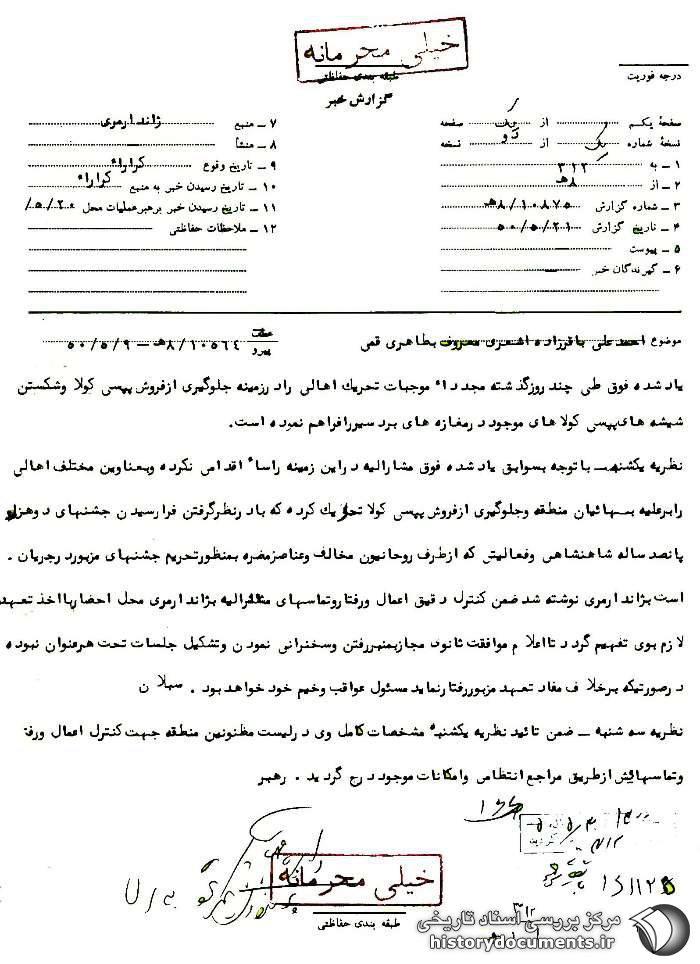 خیلی محرمانه
طبقه بندی حفاظتی
درجه فوریت
گزارش خبر
صفحهٔ یکم از یک صفحه
نسخهٔ شماره یک از دو نسخه
۱ ـ به ۳۱۲
۲ ـ از ۸ هـ
۳ ـ شماره گزارش ۸/۱۰۸۷۵ هـ
۴ ـ تاریخ گزارش ۵۰/۵/۲۱
۵ ـ پیوست
۶ ـ گیرندگان خبر
۷ ـ منبع ژاندارمری
۸ ـ منشأ
۹ ـ تاریخ وقوع کراراً
۱۰ ـ تاریخ رسیدن خبر به منبع کراراً
۱۱ ـ تاریخ رسیدن خبر برهبر عملیات محل ۵/۲۰/
۱۲ ـ ملاحظات حفاظتی
موضوع احمدعلی باقرزاده اشعری معروف بطاهری قمی
عطف
پیرو ۸/۱۰۵۶۴ هـ ـ ۵۰/۵/۹
یاد شده فوق طی چند روز گذشته مجدداً موجبات تحریک اهالی را در زمینه جلوگیری از فروش پپسی کولا وشکستن
شیشه های پپسی کولا های موجود در مغازه های بردسیر را فراهم نموده است.
نظریه یکشنبه ـ با توجه بسوابق یاد شده فوق مشارالیه در این زمینه راساً اقدامی نکرده وبعناوین مختلف اهالی
را بر علیه بهائیان منطقه وجلوگیری از فروش پپسی کولا تحریک کرده که با در نظر گرفتن فرا رسیدن جشنهای دوهزار
پانصد ساله شاهنشاهی وفعالیتی که از طرف روحانیون مخالف وعناصر مضره بمنظور تحریم جشنهای مزبور در جریان .
است بژاندارمری نوشته شد ضمن کنترل دقیق اعمال ورفتار وتماسهای مشارالیه بژاندارمری محل احضار با اخذ تعهد
لازم بوی تفهیم گردد تا اعلام موافقت ثانوی مجاز بمنبر رفتن وسخنرانی نمودن وتشکیل جلسات تحت هر عنوان نبوده
در صورتیکه بر خلاف مفاد تعهد مزبور رفتار نماید مسئول عواقب وخیم خود خواهد بود . سهلان
نظریه سه شنبه ـ ضمن تائید نظریه یکشنبه مشخصات کامل وی در لیست مظنونین منطقه جهت کنترل اعمال ورفتا
وتماسهایش از طریق مراجع انتظامی وامکانات موجود درج گردید . رهبر
خیلی محرمانه
طبقه بندی حفاظتی
۳۱۲
مرکز بررسی اسناد تاریخی
historydocuments.ir